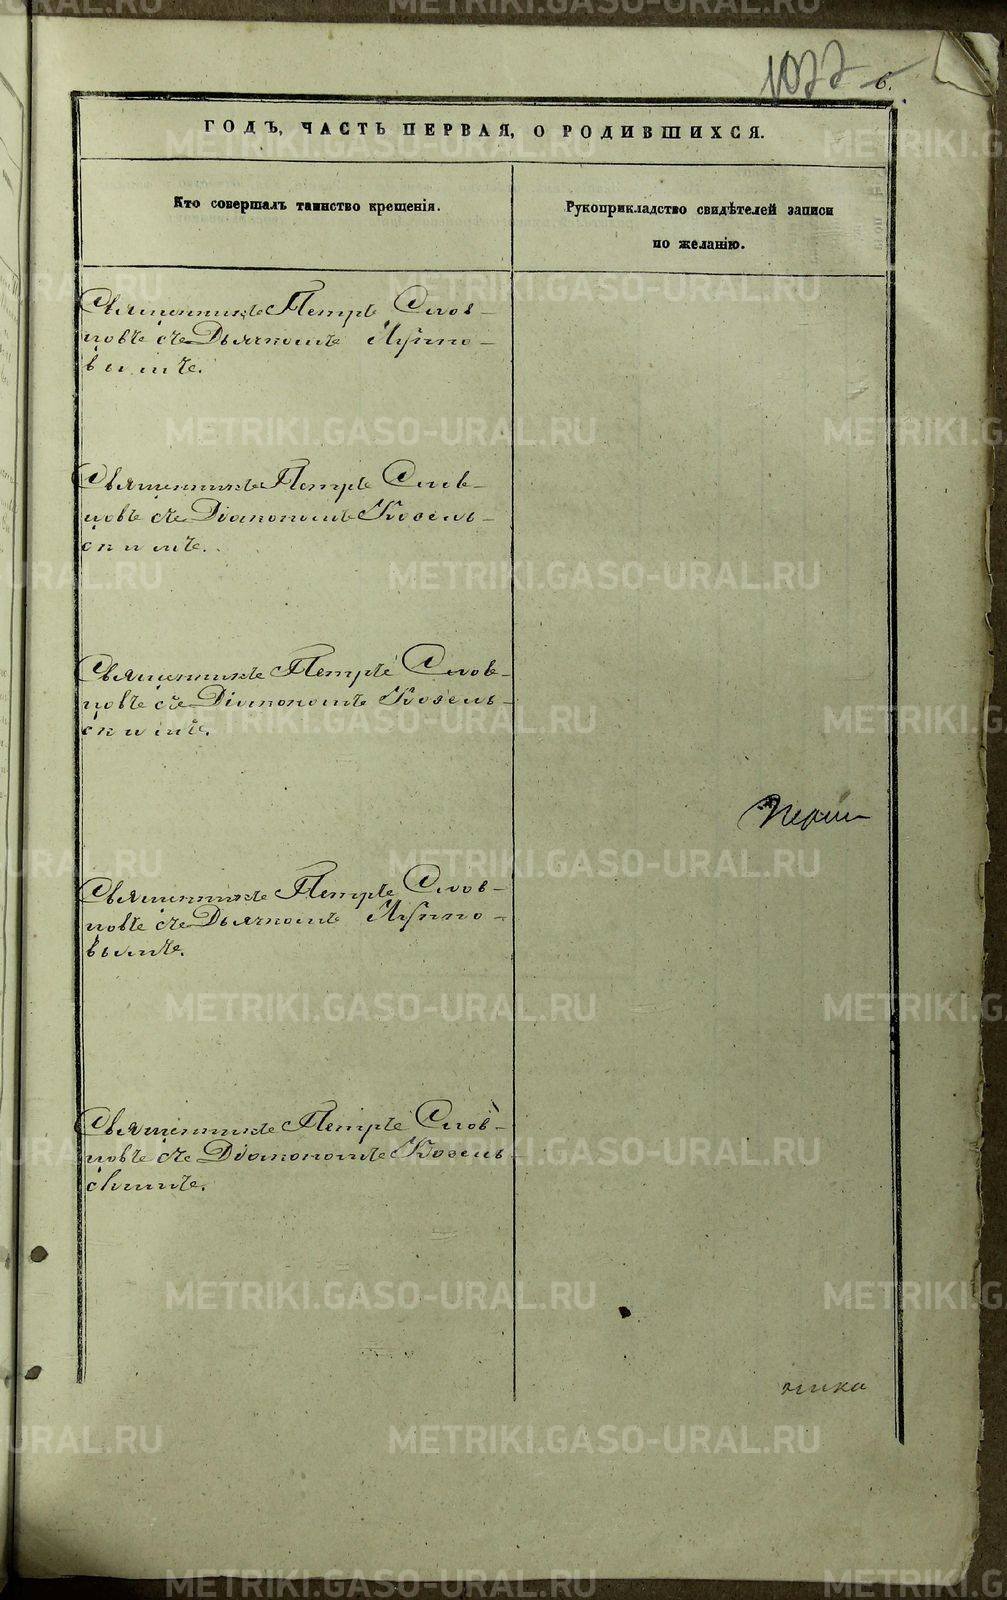 METRIKI.GASO-URAL.RU
1077
6.
ГОДЪ, ЧАСТЬ ПЕРВАЯ, О РОДИВШИХСЯ.
Кто совершалъ таинство крещенія.
Рукоприкладство свидѣтелей записи
по желанію.
Священникъ Петръ Слов-
цовъ съ Дьячкомъ
вымъ.
Священникъ Петръ Слов-
цовъ съ Діакономъ Козель-
скимъ.
Священникъ Петръ Слов-
цовъ съ Діакономъ Козель-
скимъ.
Священникъ Петръ Слов-
цовъ съ Дьячкомъ
вымъ.
Священникъ Петръ Слов-
цовъ съ Діакономъ Козель-
скимъ.